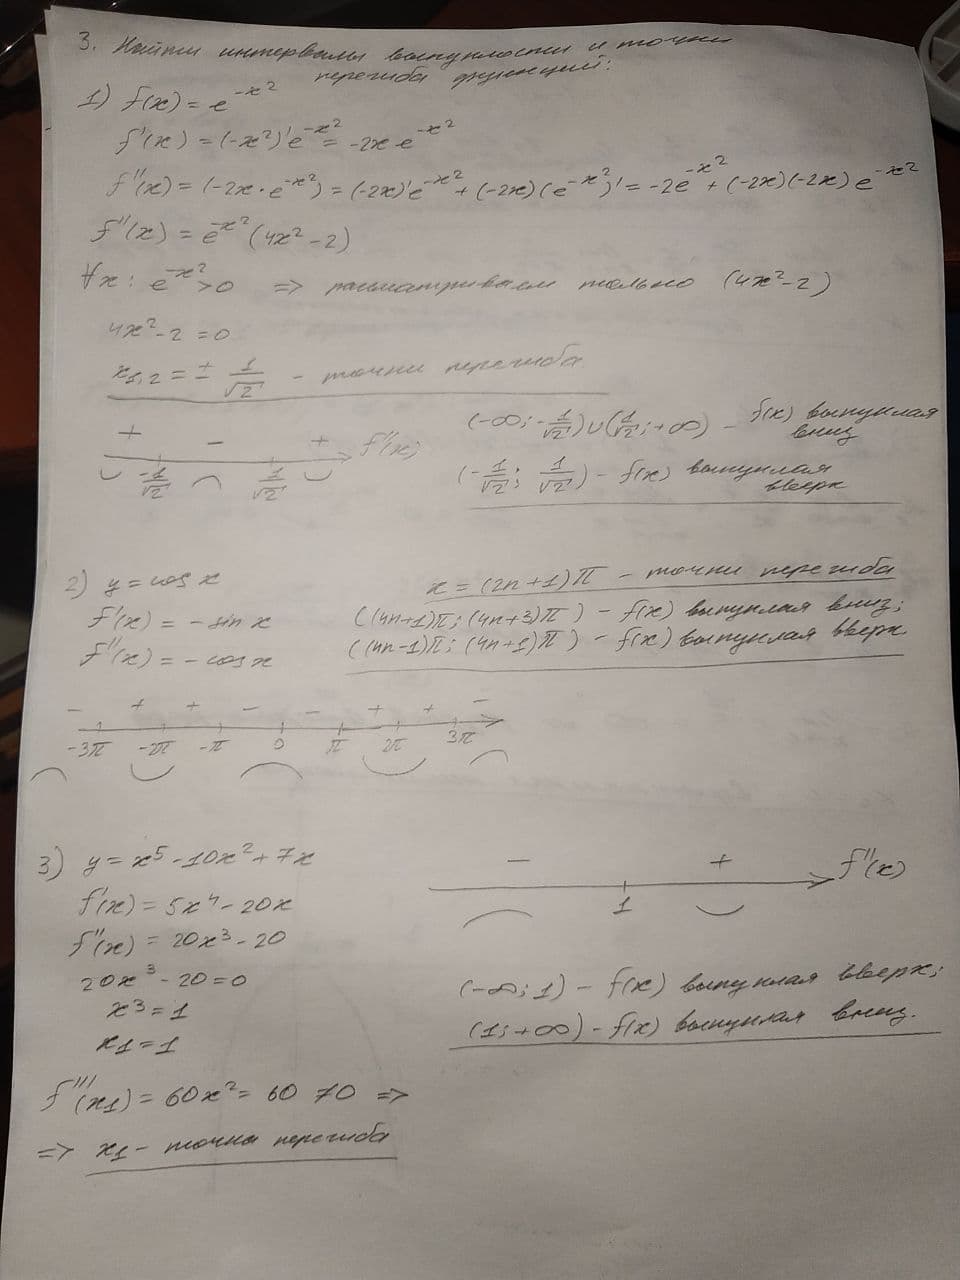 3. Найти интервалы выпуклости и точки
перегиба функций:
1) f(x) = e^{-x^2}
f'(x) = (-x^2)'e^{-x^2} = -2x·e^{-x^2}
f''(x) = (-2x·e^{-x^2}) = (-2x)'e^{-x^2} + (-2x)(e^{-x^2})' = -2e^{-x^2} + (-2x)(-2x)e^{-x^2}
f''(x) = e^{-x^2}(4x^2-2)
∀x: e^{-x^2}>0 => рассматриваем только (4x^2-2)
4x^2-2=0
x_{1,2} = ± 1/√2 - точки перегиба
+ - + f''(x)
-1/√2 1/√2
(-∞; -1/√2)∪(1/√2; +∞) - f(x) выпуклая
вниз
(-1/√2; 1/√2) - f(x) выпуклая
вверх
2) y = cos x
f'(x) = -sin x
f''(x) = -cos x
x = (2n+1)π - точки перегиба
((4n+1)π; (4n+3)π) - f(x) выпуклая вниз;
((4n-1)π; (4n+1)π) - f(x) выпуклая вверх.
- + + - - + + -
-3π -2π -π 0 π 2π 3π
3) y = x^5-10x^2+7x
f'(x) = 5x^4-20x
f''(x) = 20x^3-20
20x^3-20=0
x^3=1
x_1=1
f'''(x_1) = 60x^2 = 60 >0 =>
=> x_1 - точка перегиба
- + f''(x)
1
(-∞; 1) - f(x) выпуклая вверх;
(1; +∞) - f(x) выпуклая вниз.